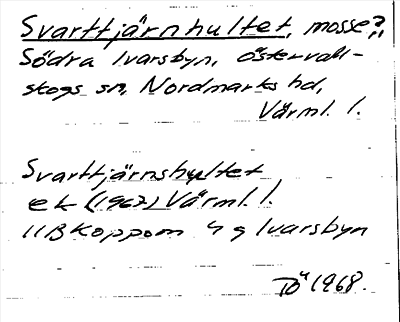 Svarttjärnhultet, mosse?,
Södra Ivarsbyn, östervall-
skogs sn, Nordmarks hd,
Värml. l.
Svarttjärnshultet
ek (1967) Värml. l.
11B Koppom 4 g Ivarsbyn
TÖ 1968.